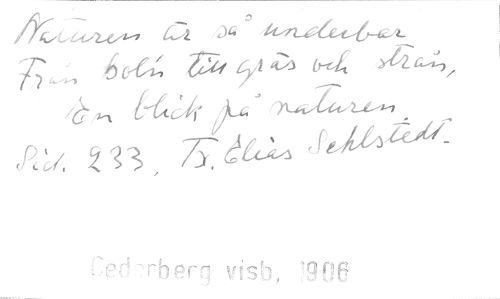 Naturen är så underbar
Från bol'n till gräs och strån,
En blick på naturen.
Sid. 233, Tx. Elias Sehlstedt.
Cederberg visb, 1906